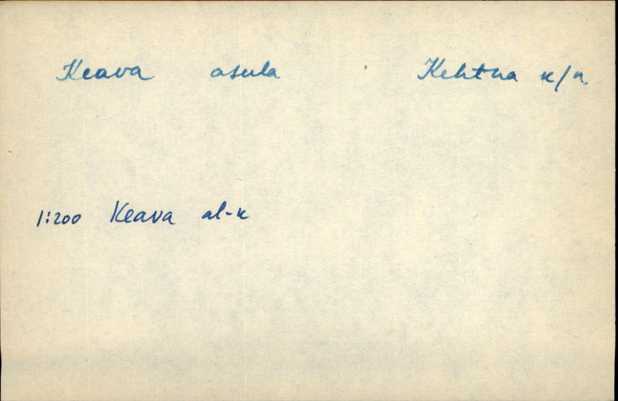 Keava asula Kehtna k/n
1:200 Keava al-k